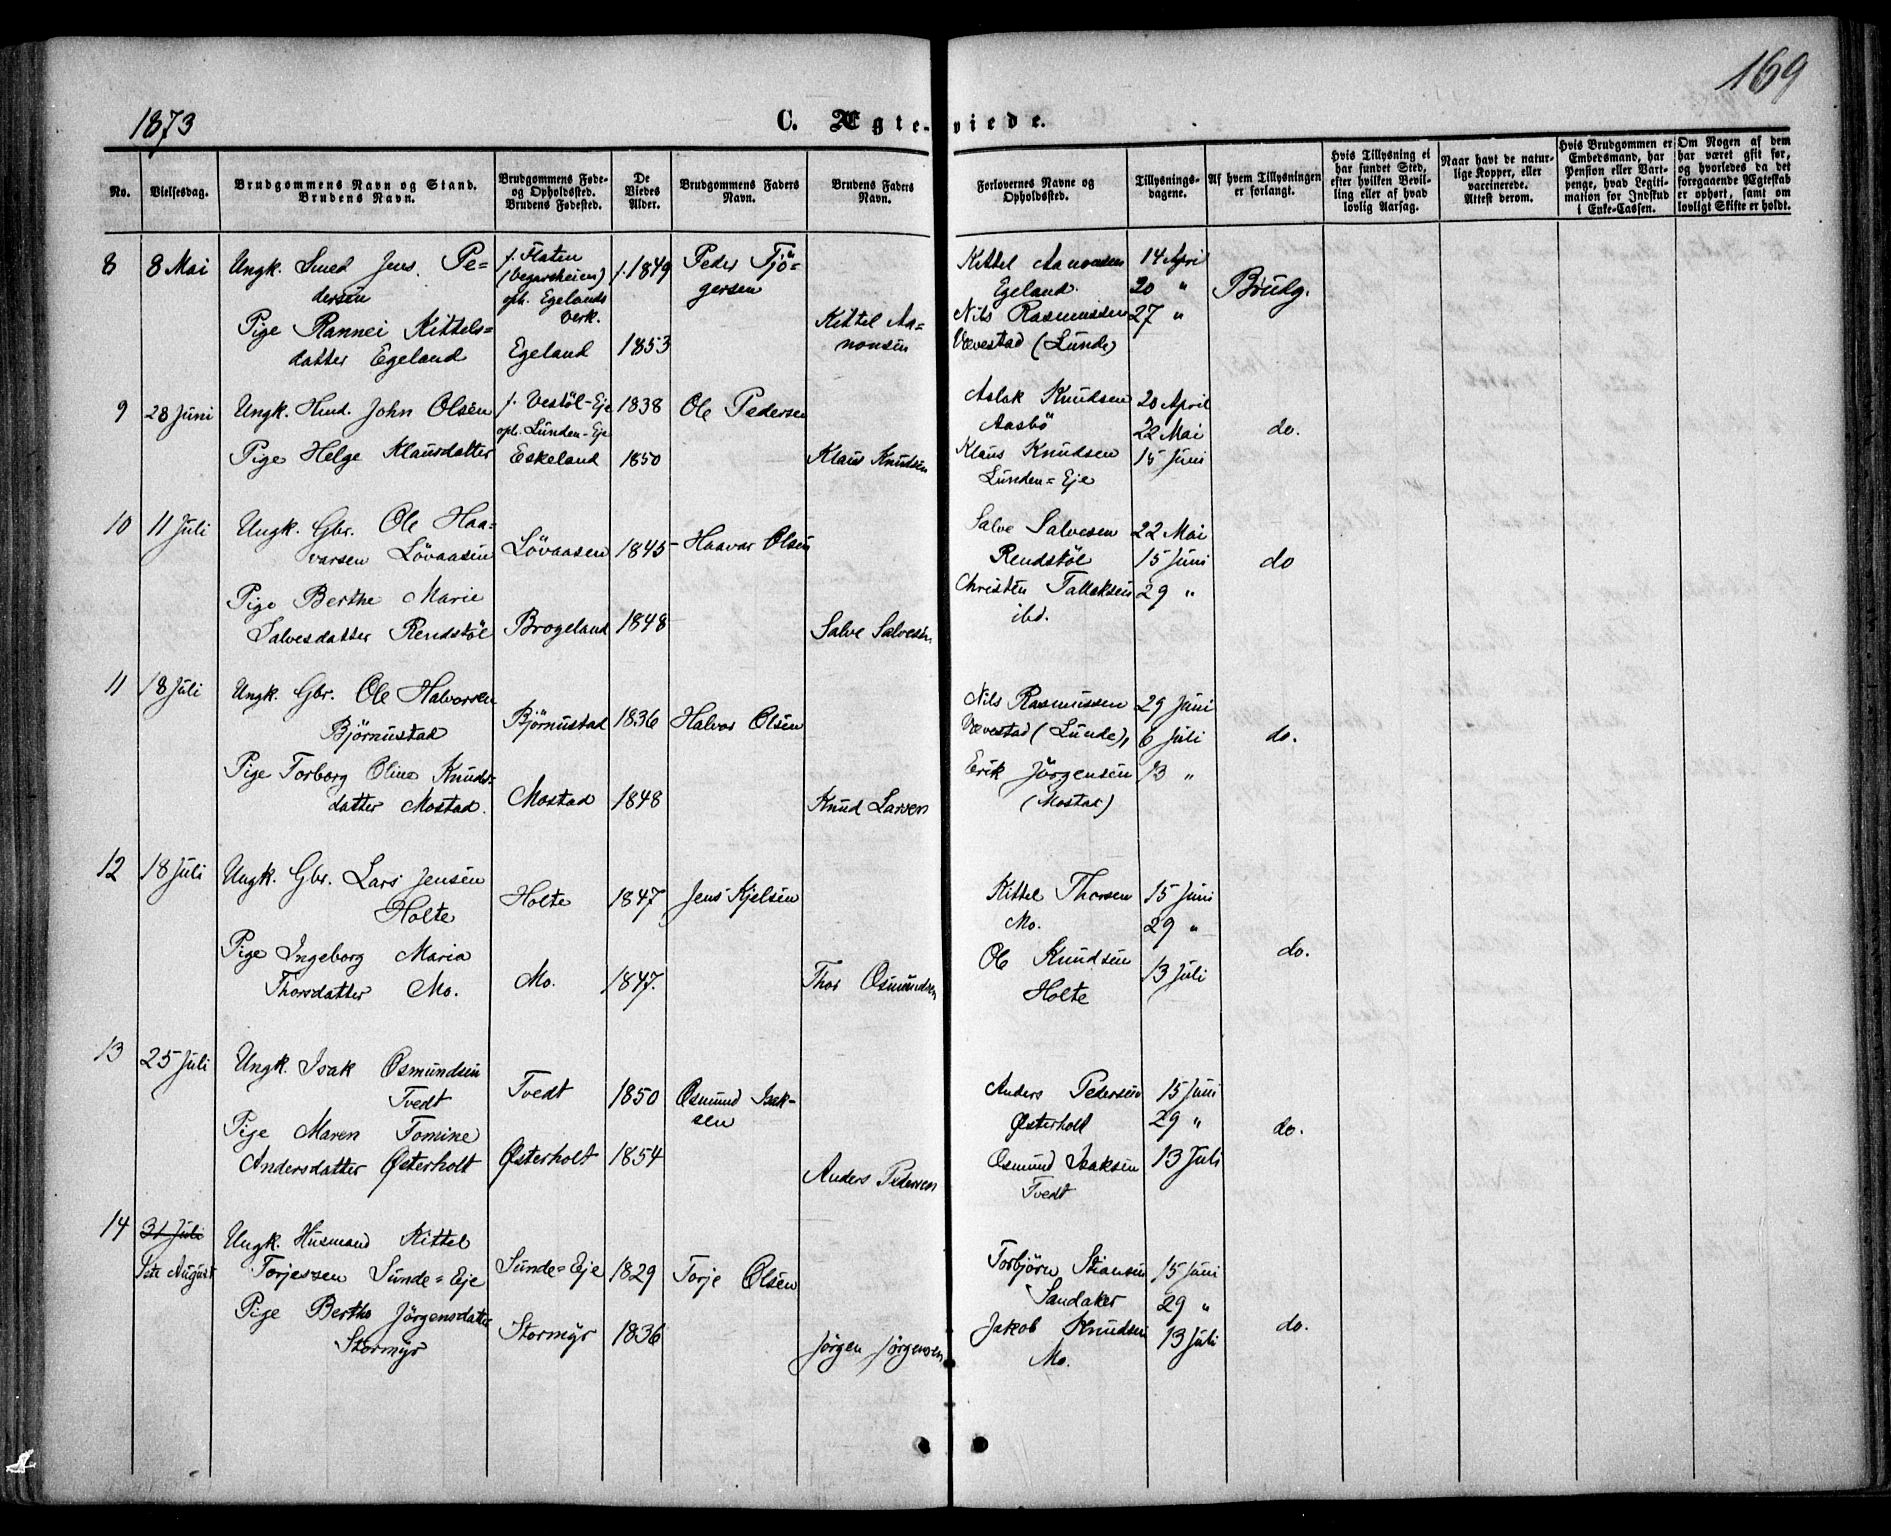 169
1873
C. Ægteviede.
No.
Vielsesdag.
Brudgommens Navn og Stand.
Brudens Navn.
Brudgommens Føde-
og Opholdssted.
Brudens Fødested.
De
Viedes
Alder.
Brudgommens Faders
Navn.
Brudens Faders
Navn.
Forlovernes Navne og
Opholdssted.
Tillysnings-
dagene.
Af hvem Tillysningen
er forlangt.
Hvis Tillysning ei
har fundet Sted,
efter hvilken Bevil-
ling eller af hvad
lovlig Aarsag.
Naar havt de natur-
lige Kopper, eller
vaccinerede.
Attest derom.
Hvis Brudgommen er
Embedsmand, har
Pension eller Vart-
penge, hvad Legiti-
mation for Indskud
i Enke-Cassen.
Om Nogen af dem
har været gift før,
og hvorledes da det
foregaaende Ægteskab
er ophørt, samt om
lovligt Skifte er holdt.
8 8 Mai Ungk. Smed Jens Pe=
dersen
f. Flaten
(Vegarsheien)
oph. Egelands
Verk.
f. 1849 Peder Tjö=
gersen
Kittel Aanonsen
Egeland.
14 April
20 "
27 "
Brudg.
Pige Rannei Kittels=
datter Egeland
Egeland 1853
Kittel Aa=
nonsen
Nils Rasmussen
Vævestad (Lunde)
9 28 Juni Ungk. Husd. John Olsen
f. Vestöl-Eje
oph. Lunden-Eje
1838 Ole Pedersen
Aslak Knudsen
Aasbö
20 April
22 Mai
15 Juni
do.
Pige Helge Klausdatter
Eskeland 1850
Klaus Knudsen
Klaus Knudsen
Lunden=Eje
10 11 Juli Ungk. Gbr. Ole Haa=
varsen Lövaasen
Lövaasen 1845 Haavar Olsen
Salve Salvesen
Rendstöl
22 Mai
15 Juni
29 "
do
Pige Berthe Marie
Salvesdatter Rendstöl
Brogeland 1848
Salve Salvesen
Christen Tallaksen
ibd.
11 18 Juli Ungk. Gbr. Ole Halvorsen
Björnustad
Björnustad 1836 Halvor Olsen
Nils Rasmussen
Vævestad (Lunde),
29 Juni
6 Juli
13 "
do.
Pige Torborg Oline Knuds=
datter Mostad.
Mostad 1848
Knud Larsen
Erik Jörgensen
(Mostad)
12 18 Juli Ungk. Gbr. Lars Jensen
Holte
Holte 1847 Jens Kjelsen
Kittel Thorsen
Mo.
15 Juni
29 "
13 Juli
do.
Pige Ingeborg Maria
Thorsdatter Mo.
Mo. 1847.
Thor Osmundsen
Ole Knudsen
Holte
13 25 Juli Ungk. Isak Osmundsen
Tvedt
Tvedt 1850 Osmund Isak-
sen
Anders Pedersen
Østerholt
15 Juni
29 "
13 Juli
do.
Pige Maren Tomine
Andersdatter Østerholt
Østerholt 1854
Anders Pedersen
Osmund Isaksen
Tvedt
14 31 Juli
1ste August
Ungk. Husmand Kittel
Torjessen Sunde=Eje
Sunde=Eje 1829 Torje Olsen
Torbjörn Stiansen
Sandaker
15 Juni
29 "
13 Juli
do.
Pige Berthe Jörgensdatter
Stormyr
Stormyr 1836
Jörgen Jörgensen
Jakob Knudsen
Mo.